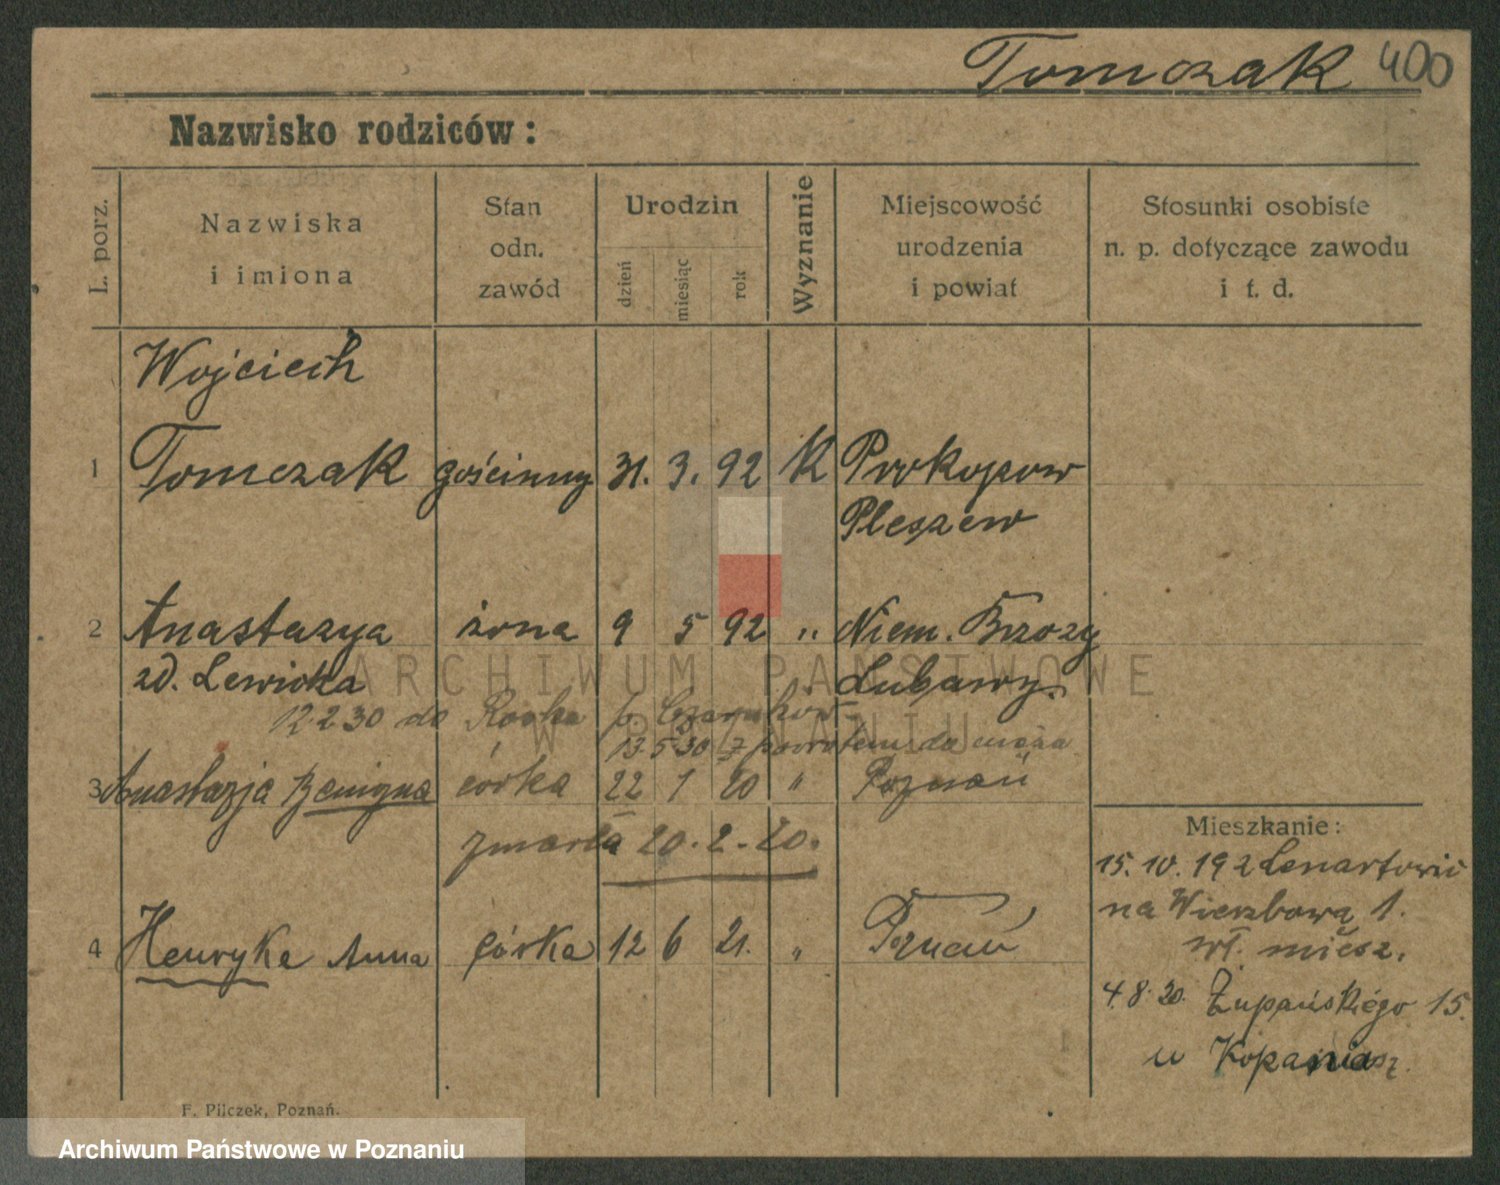 Tomczak 400
Nazwisko rodziców:
L. porz.
Nazwiska
i imiona
Stan
odn.
zawód
Urodzin
dzień
miesiąc
rok
Wyznanie
Miejscowość
urodzenia
i powiat
Stosunki osobiste
n. p. dotyczące zawodu
i t. d.
Wojciech
1 Tomczak gościnny 31. 3. 92 K Prokopow
Pleszew
2 Anastazya żona 9 5 92 " Niem. Brzozy
zd. Lewicka Lubawy.
ARCHIWUM PAŃSTWOWE
W POZNANIU
12.2.30 do p. Czarnków
13.5.30 z powrotem do męża
3 Anastazja Benigna córka 22 1 20 " Poznań
zmarła 20.2.20.
4 Henryka Anna córka 12 6 21. " Poznań
Mieszkanie:
15.10.192 Lenartowic
na Wierzbową 1.
wł. miesz.
4.8.30. Żupańskiego 15.
u
F. Pilczek, Poznań.
Archiwum Państwowe w Poznaniu